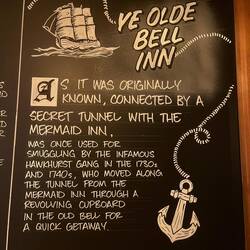 YE OLDE
BELL
INN
AS IT WAS ORIGINALLY
KNOWN, CONNECTED BY A
SECRET TUNNEL WITH THE
MERMAID INN,
WAS ONCE USED FOR
SMUGGLING BY THE INFAMOUS
HAWKHURST GANG IN THE 1730s
AND 1740s, WHO MOVED ALONG
THE TUNNEL FROM THE
MERMAID INN THROUGH A
REVOLVING CUPBOARD
IN THE OLD BELL FOR
A QUICK GETAWAY.